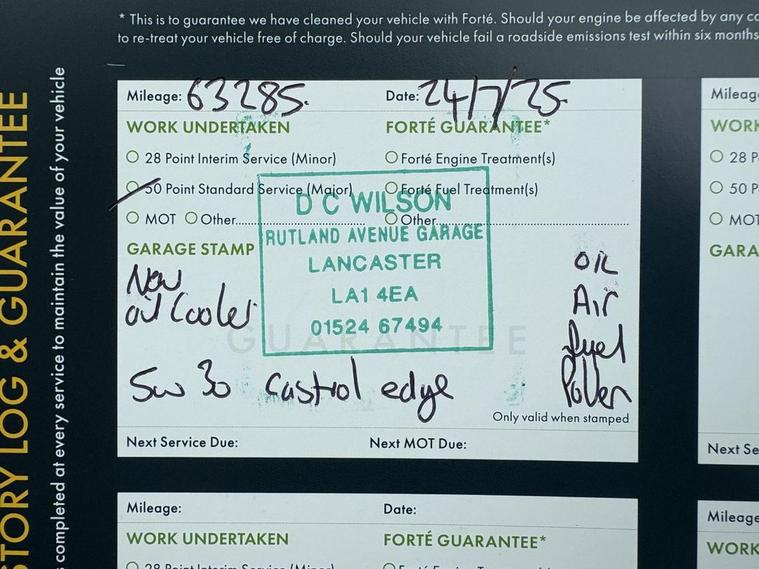 * This is to guarantee we have cleaned your vehicle with Forté. Should your engine be affected by any
to re-treat your vehicle free of charge. Should your vehicle fail a roadside emissions test within six months
STORY LOG & GUARANTEE
completed at every service to maintain the value of your vehicle
Mileage: 63285. Date: 24/7/25.
WORK UNDERTAKEN FORTÉ GUARANTEE*
28 Point Interim Service (Minor) Forté Engine Treatment(s)
50 Point Standard Service (Major) Forté Fuel Treatment(s)
MOT Other Other
GARAGE STAMP
D C WILSON
RUTLAND AVENUE GARAGE
LANCASTER
LA1 4EA
01524 67494
New
oil Cooler
OIL
Air
fuel
Pollen
5w 30 Castrol edge
GUARANTEE
Only valid when stamped
Next Service Due: Next MOT Due:
Mileage: Date:
WORK UNDERTAKEN FORTÉ GUARANTEE*
28 Point Interim Service (Minor)
Mileage
WORK
28 P
50 P
MOT
GARA
Next Se
Mileage
WORK